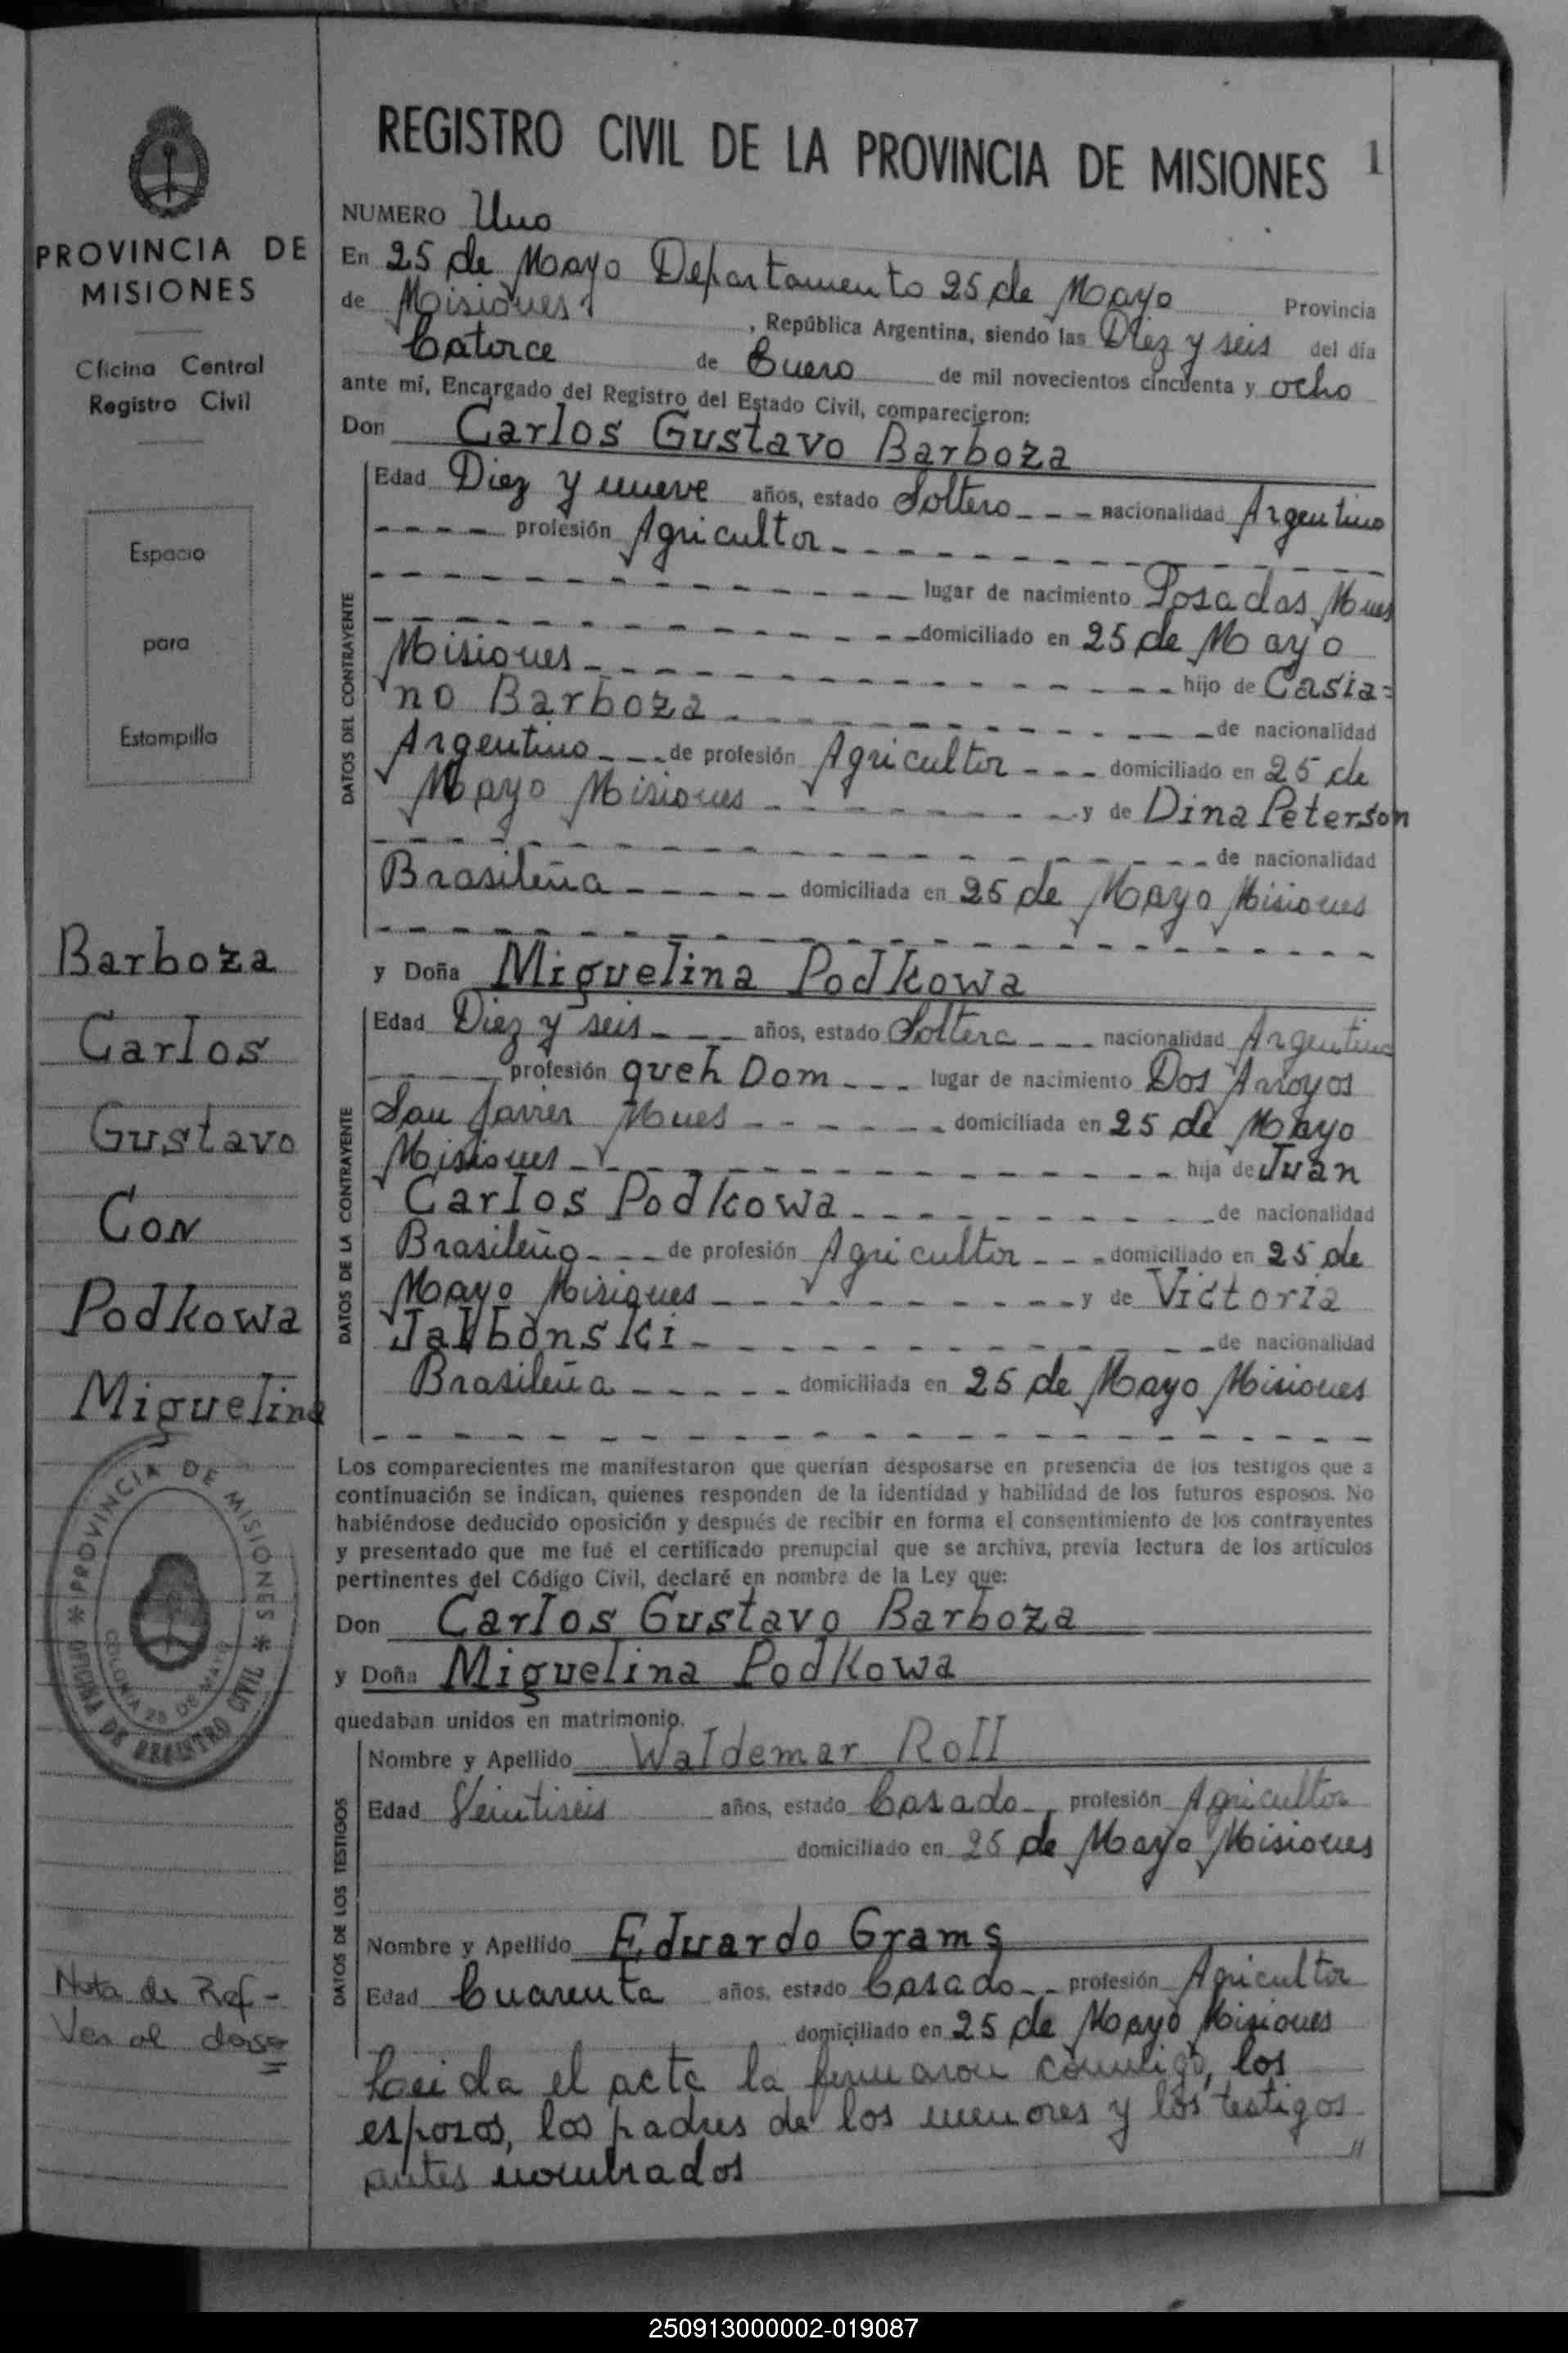 REGISTRO CIVIL DE LA PROVINCIA DE MISIONES 1
PROVINCIA DE
MISIONES
Oficina Central
Registro Civil
Espacio
para
Estampilla
Barboza
Carlos
Gustavo
Con
Podkowa
Miguelina
PROVINCIA DE MISIONES
OFICINA DE REGISTRO CIVIL
COLONIA 25 DE MAYO
Nota de Ref -
Ver al dorso
NUMERO Uno
En 25 de Mayo Departamento 25 de Mayo Provincia
de Misiones, República Argentina, siendo las Diez y seis del día
Catorce de Enero de mil novecientos cincuenta y ocho
ante mí, Encargado del Registro del Estado Civil, comparecieron:
Don Carlos Gustavo Barboza
DATOS DEL CONTRAYENTE
Edad Diez y nueve años, estado Soltero nacionalidad Argentino
profesión Agricultor
lugar de nacimiento Posadas Mnes
domiciliado en 25 de Mayo
Misiones hijo de Casia=
no Barboza de nacionalidad
Argentino de profesión Agricultor domiciliado en 25 de
Mayo Misiones y de Dina Peterson
de nacionalidad
Brasileña domiciliada en 25 de Mayo Misiones
y Doña Miguelina Podkowa
DATOS DE LA CONTRAYENTE
Edad Diez y seis años, estado Soltera nacionalidad Argentina
profesión queh Dom lugar de nacimiento Dos Arroyos
San Javier Mnes domiciliada en 25 de Mayo
Misiones hija de Juan
Carlos Podkowa de nacionalidad
Brasileño de profesión Agricultor domiciliado en 25 de
Mayo Misiones y de Victoria
de nacionalidad
Brasileña domiciliada en 25 de Mayo Misiones
Los comparecientes me manifestaron que querían desposarse en presencia de los testigos que a
continuación se indican, quienes responden de la identidad y habilidad de los futuros esposos. No
habiéndose deducido oposición y después de recibir en forma el consentimiento de los contrayentes
y presentado que me fué el certificado prenupcial que se archiva, previa lectura de los artículos
pertinentes del Código Civil, declaré en nombre de la Ley que:
Don Carlos Gustavo Barboza
y Doña Miguelina Podkowa
quedaban unidos en matrimonio.
DATOS DE LOS TESTIGOS
Nombre y Apellido Waldemar Roll
Edad Veintiseis años, estado Casado profesión Agricultor
domiciliado en 25 de Mayo Misiones
Nombre y Apellido Eduardo Grams
Edad Cuarenta años, estado Casado profesión Agricultor
domiciliado en 25 de Mayo Misiones
Leida el acta la firmaron conmigo, los
esposos, los padres de los menores y los testigos
antes nombrados "
250913000002-019087